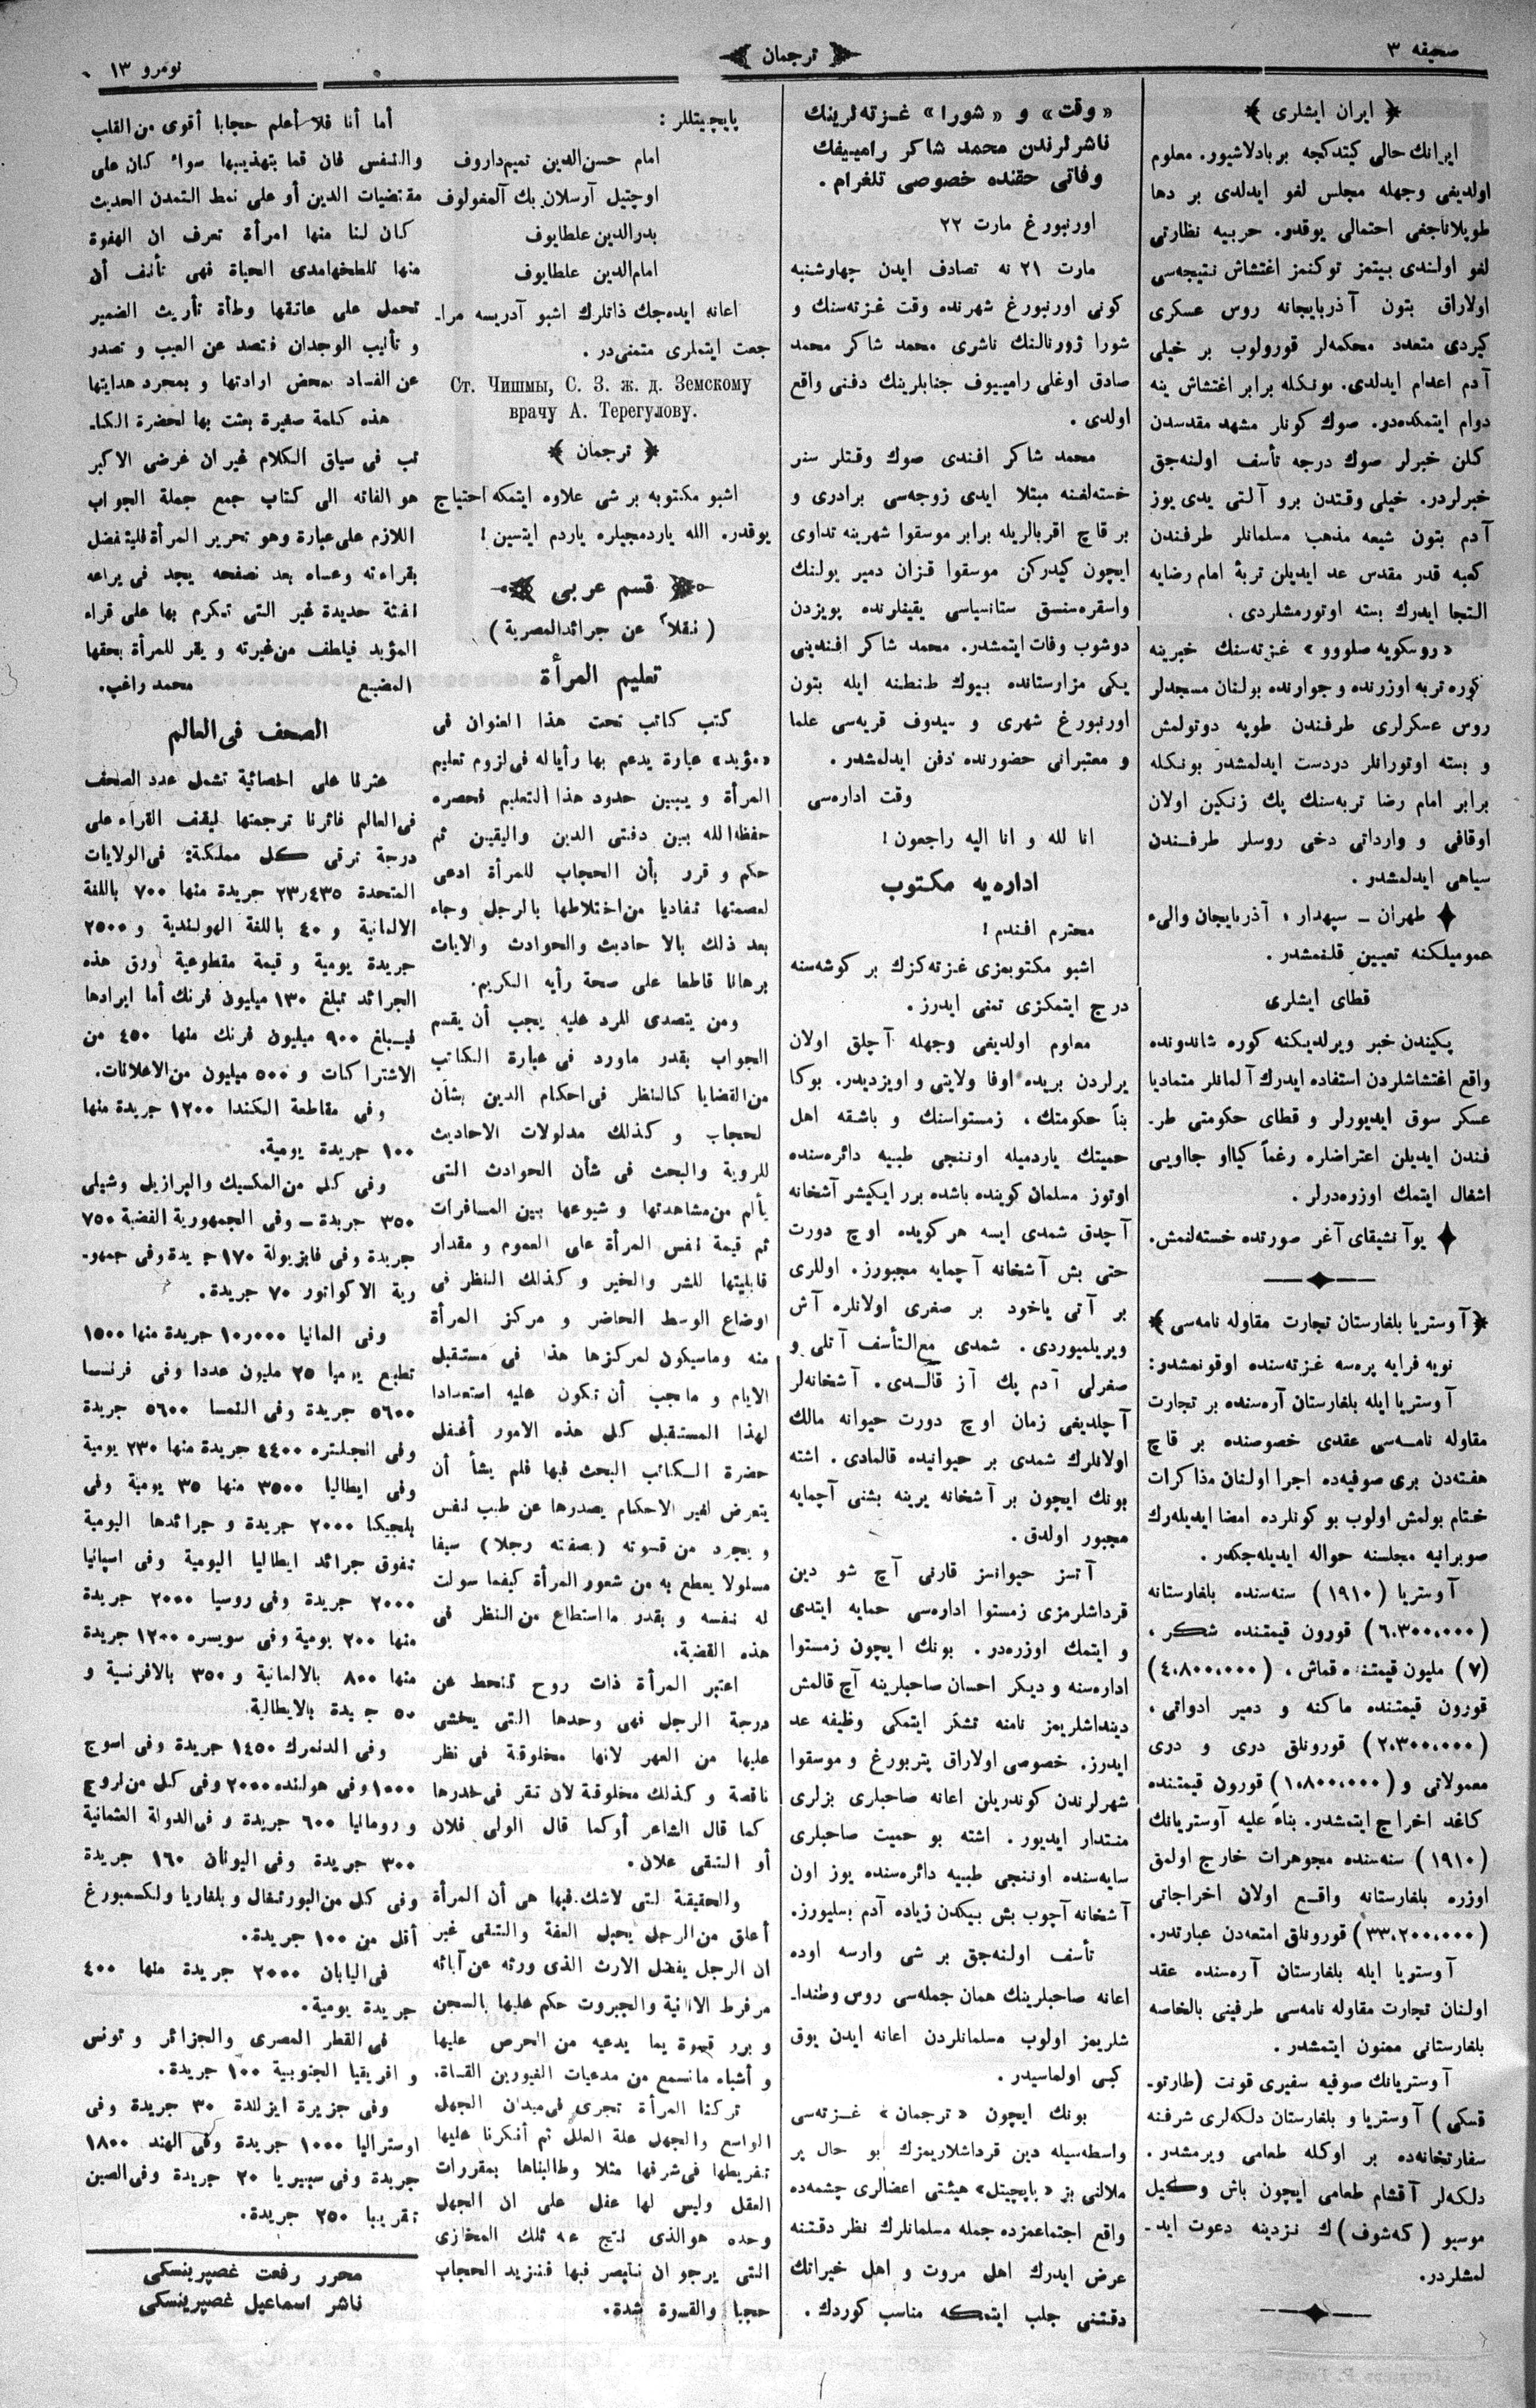 صحيفه ٣
ترجمان
نومرو ١٣
﴿ ايران ايشلرى ﴾
ايرانك حالى كيتدكجه بربادلاشيور. معلوم
اولديغى وجهله مجلس لغو ايدلدى بر دها
طوپلاناجغى احتمالى يوقدو. حربيه نظارتى
لغو اولندى بيتمز توكنمز اغتشاش نتيجه‌سى
اولاراق بتون آذربايجانه روس عسكرى
كيردى متعدد محكمه‌لر قورولوب بر خيلى
آدم اعدام ايدلدى. بونكله برابر اغتشاش ينه
دوام ايتمكده‌دو. صوك كونلر مشهد مقدسدن
كلن خبرلر صوك درجه تأسف اولنه‌جق
خبرلردر. خيلى وقتدن برو آلتى يدى يوز
آدم بتون شيعه مذهب مسلمانلر طرفندن
كعبه قدر مقدس عد ايديلن تربۀ امام رضايه
التجا ايدرك بسته اوتورمشلردى .
«روسكويه صلووو» غزته‌سنك خبرينه
كوره تربه اوزرنده و جوارنده بولنان مسجدلر
روس عسكرلرى طرفندن طوپه دوتولمش
و بسته اوتورانلر دردست ايدلمشدر بونكله
برابر امام رضا تربه‌سنك پك زنكين اولان
اوقافى و وارداتى دخى روسلر طرفندن
سياهى ايدلمشدر .
✦ طهران – سپهدار ، آذربايجان والىء
عموميلكنه تعيين قلنمشدر .
قطاى ايشلرى
پكيندن خبر ويرلديكنه كوره شاندونده
واقع اغتشاشلردن استفاده ايدرك آلمانلر متماديا
عسكر سوق ايديورلر و قطاى حكومتى طر-
فندن ايديلن اعتراضلره رغماً كياو جاويى
اشغال ايتمك اوزره‌درلر .
✦ يوآنشيقاى آغر صورتده خسته‌لنمش.
﴿ آوستريا بلغارستان تجارت مقاوله نامه‌سى ﴾
نويه فرايه پره‌سه غزته‌سنده اوقونمشدر:
آوستريا ايله بلغارستان آره‌سنده بر تجارت
مقاوله نامه‌سى عقدى خصوصنده بر قاچ
هفته‌دن برى صوفيه‌ده اجرا اولنان مذاكرات
ختام بولمش اولوب بو كونلرده امضا ايديله‌رك
صوبرانيه مجلسنه حواله ايديله‌جكدر .
آوستريا (١٩١٠) سنه‌سنده بلغارستانه
(٦،٣٠٠،٠٠٠) قورون قيمتنده شكر ،
(٧) مليون قيمتنده قماش ، (٤،٨٠٠،٠٠٠)
قورون قيمتنده ماكنه و دمير ادواتى ،
(٢،٣٠٠،٠٠٠) قورونلق درى و درى
معمولاتى و (١،٨٠٠،٠٠٠) قورون قيمتنده
كاغد اخراج ايتمشدر. بناءً عليه آوستريانك
(١٩١٠) سنه‌سنده مجوهرات خارج اولمق
اوزره بلغارستانه واقع اولان اخراجاتى
(٣٣،٢٠٠،٠٠٠) قورونلق امتعه‌دن عبارتدر.
آوستريا ايله بلغارستان آره‌سنده عقد
اولنان تجارت مقاوله نامه‌سى طرفينى بالخاصه
بلغارستانى ممنون ايتمشدر .
آوستريانك صوفيه سفيرى قونت (طارتو-
قسكى) آوستريا و بلغارستان دلكه‌لرى شرفنه
سفارتخانه‌ده بر اوكله طعامى ويرمشدر .
دلكه‌لر آقشام طعامى ايچون باش وكيل
موسيو (كه‌شوف) ك نزدينه دعوت ايد-
لمشلردر.
«وقت» و «شورا» غزته‌لرينك
ناشرلرندن محمد شاكر راميیفك
وفاتى حقنده خصوصى تلغرام .
اورنبورغ مارت ٢٢
مارت ٢١ نه تصادف ايدن چهارشنبه
كونى اورنبورغ شهرنده وقت غزته‌سنك و
شورا ژورنالنك ناشرى محمد شاكر محمد
صادق اوغلى رامييوف جنابلرينك دفنى واقع
اولدى .
محمد شاكر افندى صوك وقتلر سنر
خسته‌لغنه مبتلا ايدى زوجه‌سى برادرى و
بر قاچ اقربالريله برابر موسقوا شهرينه تداوى
ايچون كيدركن موسقوا قزان دمير يولنك
واسقره‌سنسق ستانسياسى يقينلرنده پويزدن
دوشوب وفات ايتمشدر. محمد شاكر افندينى
يكى مزارستانده بيوك طنطنه ايله بتون
اورنبورغ شهرى و سيدوف قريه‌سى علما
و معتبرانى حضورنده دفن ايدلمشدر .
وقت اداره‌سى
انا لله و انا اليه راجعون !
اداره‌يه مكتوب
محترم افندم !
اشبو مكتوبمزى غزته‌كزك بر كوشه‌سنه
درج ايتمكزى تمنى ايدرز.
معلوم اولديغى وجهله آچلق اولان
يرلردن بريده اوفا ولايتى و اويزديدر. بوكا
بناً حكومتك ، زمستواسنك و باشقه اهل
حميتك ياردميله اوننجى طبيه دائره‌سنده
اوتوز مسلمان كوينده باشده برر ايكيشر آشخانه
آچدق شمدى ايسه هر كويده اوچ دورت
حتى بش آشخانه آچمايه مجبورز. اوللرى
بر آتى ياخود بر صغرى اولانلره آش
ويريلميوردى . شمدى مع‌التأسف آتلى و
صغرلى آدم پك آز قالدى . آشخانه‌لر
آچلديغى زمان اوچ دورت حيوانه مالك
اولانلرك شمدى بر حيوانيده قالمادى . اشته
بونك ايچون بر آشخانه يرينه بشنى آچمايه
مجبور اولدق .
آتسز حيوانسز قارنى آچ شو دين
قرداشلرمزى زمستوا اداره‌سى حمايه ايتدى
و ايتمك اوزره‌در . بونك ايچون زمستوا
اداره‌سنه و ديكر احسان صاحبلرينه آچ قالمش
دينداشلريمز نامنه تشكر ايتمكى وظيفه عد
ايدرز. خصوصى اولاراق پتربورغ و موسقوا
شهرلرندن كوندريلن اعانه صاحبلرى بزلرى
منتدار ايديور . اشته بو حميت صاحبلرى
سايه‌سنده اوننجى طبيه دائره‌سنده يوز اون
آشخانه آچوب بش بيكدن زياده آدم بسليورز.
تأسف اولنه‌جق بر شى وارسه اوده
اعانه صاحبلرينك همان جمله‌سى روس وطندا-
شلريمز اولوب مسلمانلردن اعانه ايدن يوق
كبى اولماسيدر .
بونك ايچون «ترجمان» غزته‌سى
واسطه‌سيله دين قرداشلاريمزك بو حال پر
ملالنى بز «پاپچيتل» هيئتى اعضالرى چشمه‌ده
واقع اجتماعمزده جمله مسلمانلرك نظر دقتنه
عرض ايدرك اهل مروت و اهل خيراتك
دقتنى جلب ايتمكه مناسب كوردك .
پاپچيتللر :
امام حسن‌الدين تميم‌داروف
اوچتيل آرسلان بك آلمغولوف
بدرالدين علطايوف
امام‌الدين علطايوف
اعانه ايده‌جك ذاتلرك اشبو آدريسه مرا-
جعت ايتملرى متمنى‌در .
Ст. Чишмы, С. З. ж. д. Земскому
врачу А. Терегулову.
﴿ ترجمان ﴾
اشبو مكتوبه بر شى علاوه ايتمكه احتياج
يوقدر. الله ياردمجيلره ياردم ايتسين !
قسم عربى
( نقلاً عن جرائدالمصرية )
تعليم المرأة
كتب كاتب تحت هذا العنوان فى
«مؤيد» عبارة يدعم بها رأياله فى لزوم تعليم
المرأة و يبين حدود هذا التعليم فحصره
حفظه‌الله بين دفتى الدين واليقين ثم
حكم و قرر بأن الحجاب للمرأة ادعى
لعصمتها تفاديا من اختلاطها بالرجل وجاء
بعد ذلك بالا حاديث والحوادث والايات
برهانا قاطعا على صحة رأيه الكريم.
ومن يتصدى للرد عليه يجب أن يقسم
الجواب بقدر ماورد فى عبارة الكاتب
من‌القضايا كالنظر فى احكام الدين بشأن
لحجاب و كذلك مدلولات الاحاديث
للروية والبحث فى شأن الحوادث التى
يألم من مشاهدتها و شيوعها بين المسافرات
ثم قيمة نفس المرأة على العموم و مقدار
قابليتها للشر والخير و كذلك النظر فى
اوضاع الوسط الحاضر و مركز المرأة
منه وماسيكون لمركزها هذا فى مستقبل
الايام و ماجب أن تكون عليه استعدادا
لهذا المستقبل كل هذه الامور أغفل
حضرة الكاتب البحث فيها فلم يشأ أن
يتعرض لغير الاحكام يصدرها عن طيب نفس
و يجرد من قسوته (بصفته رجلا) سيفا
مسلولا يعطع به من شعور المرأة كيفما سولت
له نفسه و بقدر مااستطاع من النظر فى
هذه القضية.
اعتبر المرأة ذات روح تنحط عن
درجة الرجل فهى وحدها التى يخشى
عليها من العهر لانها مخلوقة فى نظر
ناقصة و كذلك مخلوقة لان تقر فى خدرها
كما قال الشاعر أوكما قال الولى فلان
أو التقى علان.
والحقيقة لتى لاشك فيها هى أن المرأة
أعلق من الرجل بحبل العفة والتقى غير
ان الرجل بفضل الارث الذى ورثه عن آبائه
مرفرط الانانية والجبروت حكم عليها بالسجن
و برر قسوة بما يدعيه من الحرص عليها
و أشباه مانسمع من مدعيات الغيورين القساة.
تركنا المرأة تجرى فى ميدان الجهل
الواسع والجهل علة العلل ثم أنكرنا عليها
تفريطها فى شرفها مثلا وطالبناها بمقررات
العقل وليس لها عقل على ان الجهل
وحده هوالذى نتج عنه تلك المخازى
التى يرجو ان نتبصر فيها فنزيد الحجاب
حجبا والقسوة شدة.
أما أنا فلا أعلم حجابا أقوى من القلب
والنفس فان قما بتهذيبها سواء كان على
مقتضيات الدين أو على نمط التمدن الحديث
كان لنا منها امرأة تعرف ان الهفوة
منها تلطخهامدى الحياة فهى تأنف أن
تحمل على عاتقها وطأة تأريث الضمير
و تأنيب الوجدان فتصد عن العيب و تصدر
عن الفساد بمحض ارادتها و بمجرد هدايتها
هذه كلمة صغيرة بعثت بها لحضرة الكا-
تب فى سياق الكلام غير ان غرضى الاكبر
هو الفاته الى كتاب جمع جملة الجواب
اللازم على عبارة وهو تحرير المرأة فليتفضل
بقراءته وعساه بعد تصفحه يجد فى يراعه
نفثة جديدة غير التى تكرم بها على قراء
المؤيد فيلطف من غيرته و يقر للمرأة بحقها
المضيع محمد راغب.
الصحف فى العالم
عثرنا على احصائية تشمل عدد الصحف
فى العالم فاثرنا ترجمتها ليقف القراء على
درجة ترقى كل مملكة: فى الولايات
المتحدة ٢٣٫٤٣٥ جريدة منها ٧٠٠ باللغة
الالمانية و ٤٠ باللغة الهولندية و ٢٥٠٠
جريدة يومية وقيمة مقطوعية ورق هذه
الجرائد تبلغ ١٣٠ ميليون فرنك أما ايرادها
فيبلغ ٩٠٠ ميليون فرنك منها ٤٥٠ من
الاشتراكات و ٥٠٠ ميليون من الاعلانات.
وفى مقاطعة الكندا ١٢٠٠ جريدة منها
١٠٠ جريدة يومية.
وفى كل من المكسيك والبرازيل وشيلى
٣٥٠ جريدة – وفى الجمهورية الفضية ٧٥٠
جريدة وفى فايزيولة ١٧٠ جريدة وفى جمهو-
رية الاكواتور ٧٠ جريدة.
وفى المانيا ١٠٫٠٠٠ جريدة منها ١٥٠٠
تطبع يوميا ٢٥ مليون عددا وفى فرنسا
٥٦٠٠ جريدة وفى النمسا ٥٦٠٠ جريدة
وفى انجلتره ٤٤٠٠ جريدة منها ٢٣٠ يومية
وفى ايطاليا ٣٥٠٠ منها ٣٥ يومية وفى
بلجيكا ٢٠٠٠ جريدة و جرائدها اليومية
تفوق جرائد ايطاليا اليومية وفى اسپانيا
٢٠٠٠ جريدة وفى روسيا ٢٠٠٠ جريدة
منها ٢٠٠ يومية وفى سويسره ١٢٠٠ جريدة
منها ٨٠٠ بالالمانية و ٣٥٠ بالافرنسية و
٥٠ جريدة بالايطالية.
وفى الدنمرك ١٤٥٠ جريدة وفى اسوج
١٠٠٠ وفى هولنده ٢٠٠٠ وفى كل من نروج
و رومانيا ٦٠٠ جريدة و فى الدولة العثمانية
٣٠٠ جريدة وفى اليونان ١٦٠ جريدة
وفى كل من البورتغال و بلغاريا ولكسمبورغ
أقل من ١٠٠ جريدة.
فى اليابان ٢٠٠٠ جريدة منها ٤٠٠
جريدة يومية.
فى القطر المصرى والجزائر و تونس
و افريقيا الجنوبية ١٠٠ جريدة.
وفى جزيرة ايزلندة ٣٠ جريدة وفى
اوستراليا ١٠٠٠ جريدة وفى الهند ١٨٠٠
جريدة وفى سيبيريا ٢٠ جريدة وفى الصين
تقريبا ٢٥٠ جريدة.
محرر رفعت غصپرينسكى
ناشر اسماعيل غصپرينسكى